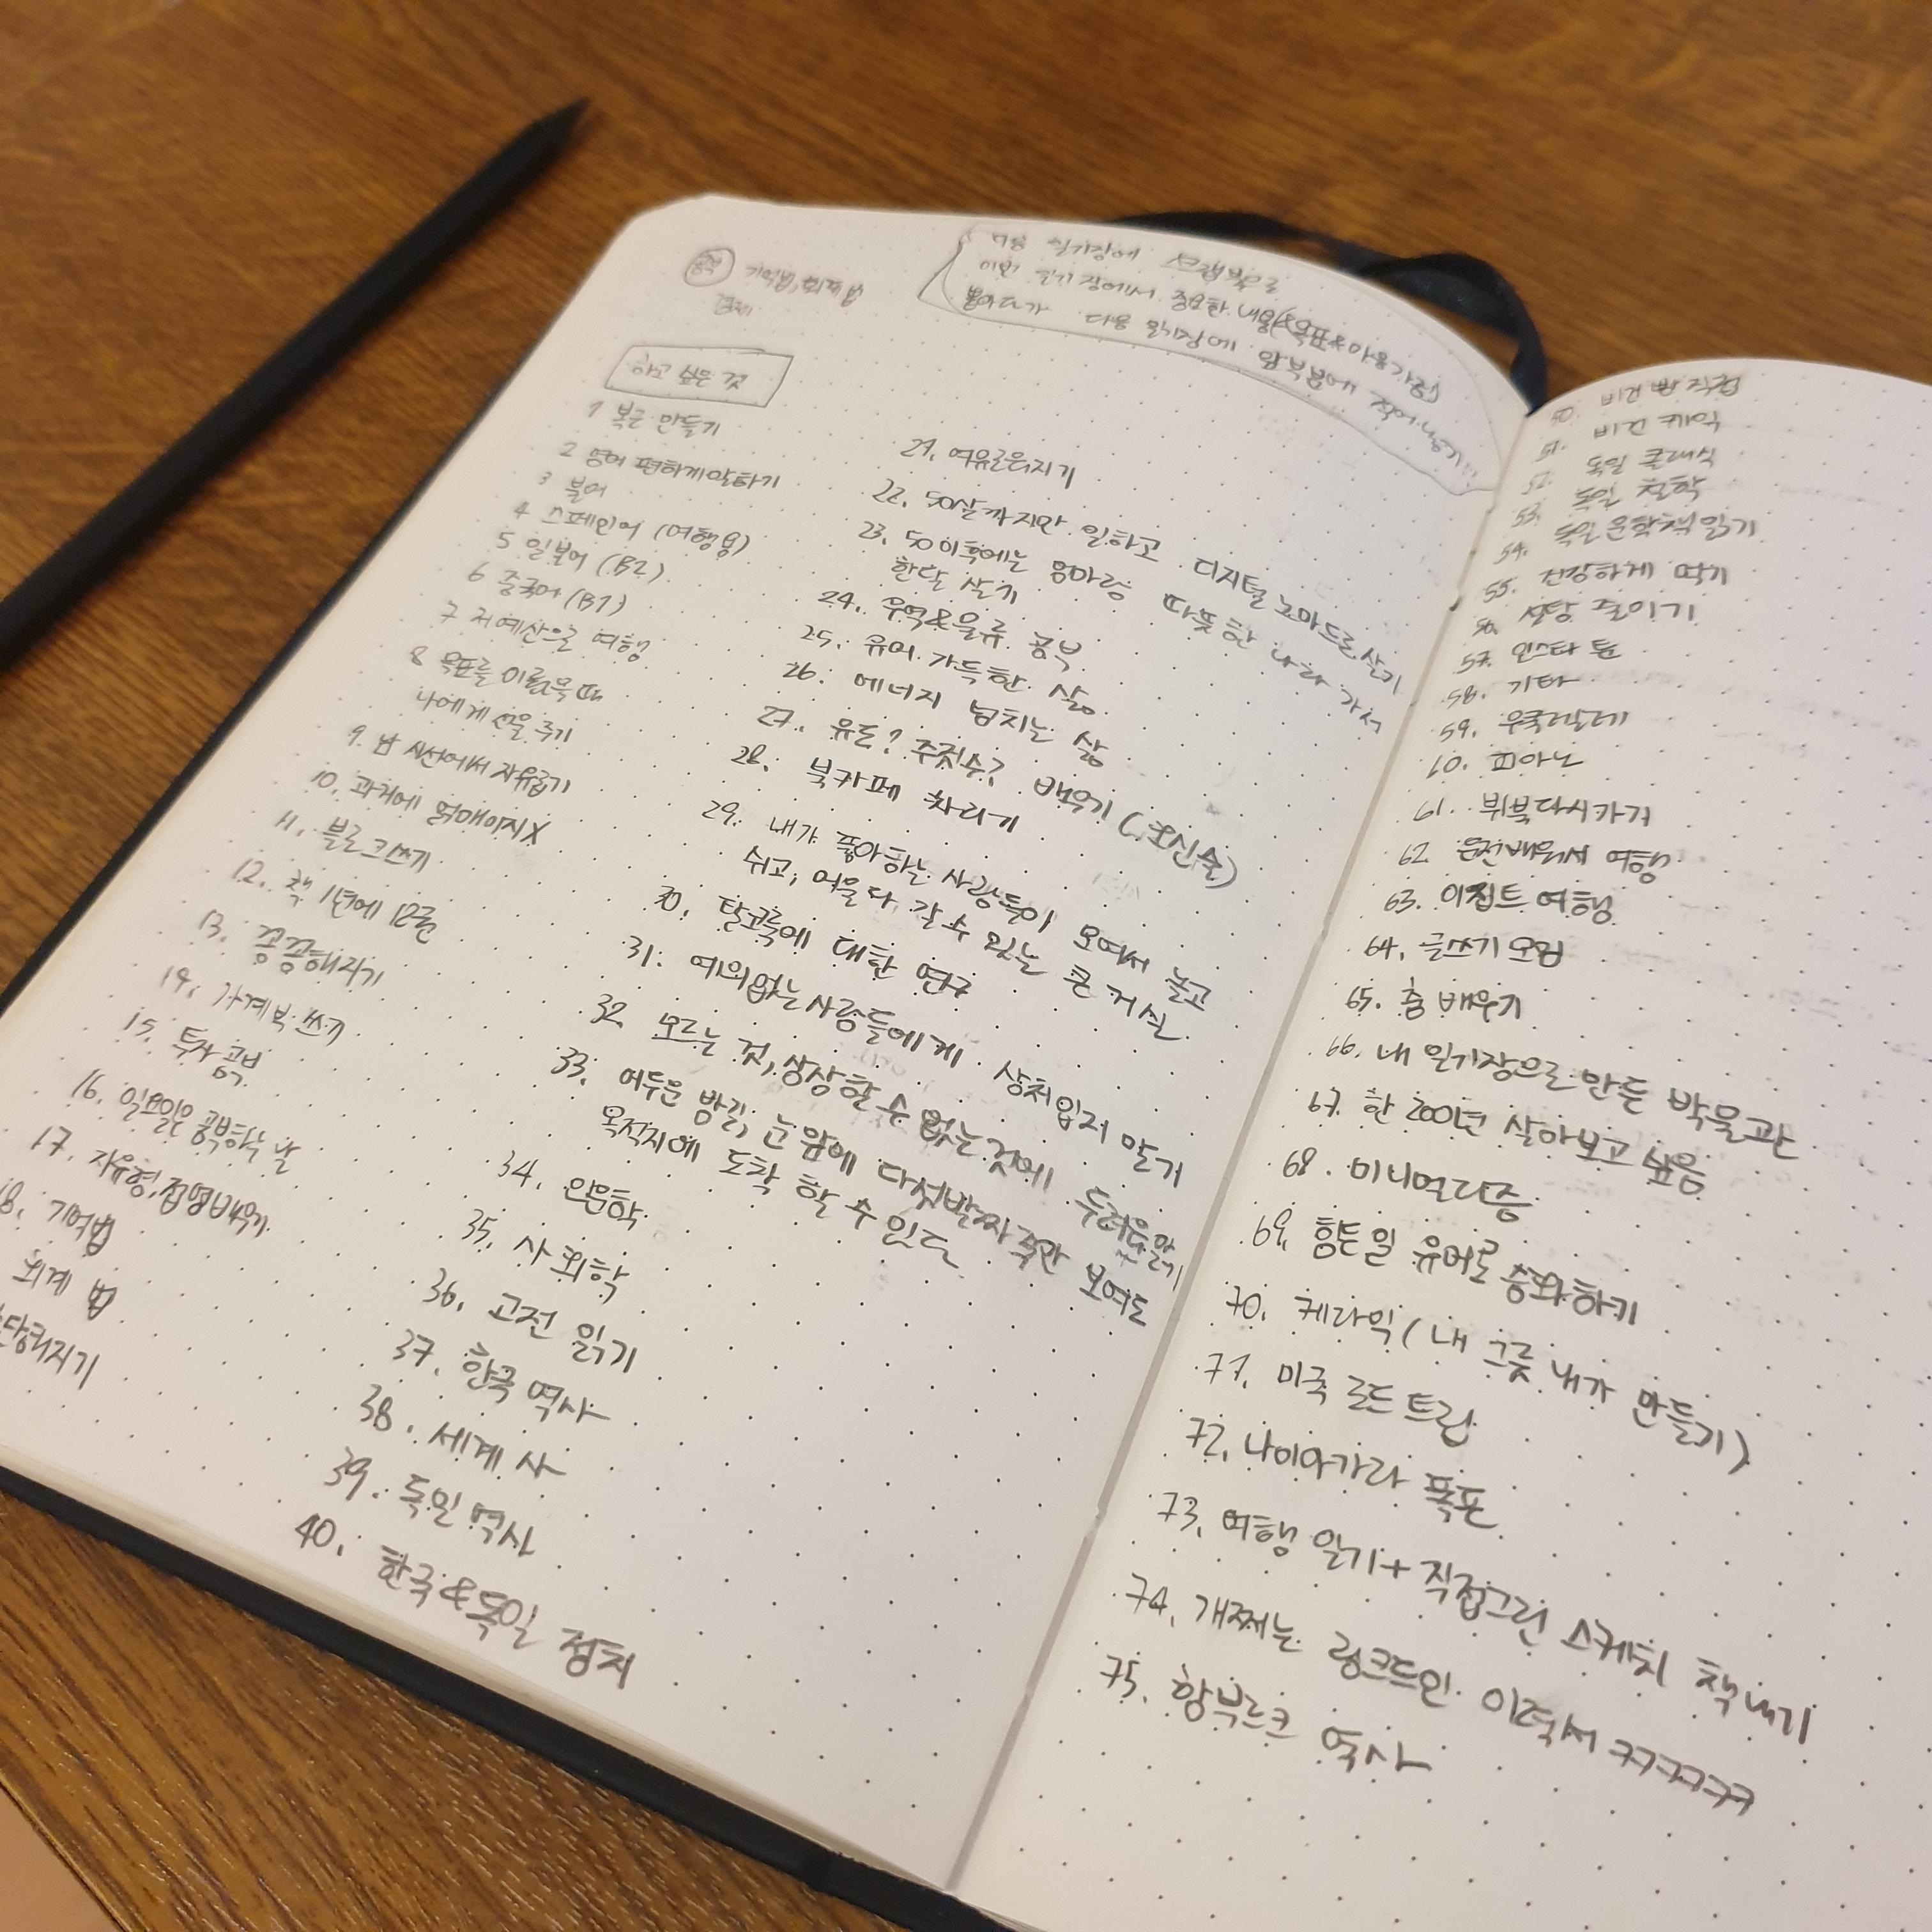 하고 싶은 것
1 복근 만들기
2 영어 편하게 말하기
3 불어
4 스페인어 (여행용)
5 일본어 (B2)
6 중국어 (B1)
7 저예산으로 여행
8 목표를 이뤘을 때
나에게 선물 주기
9. 남 시선에서 자유롭기
10. 과거에 얽매이지X
11. 블로그쓰기
12. 책 1년에 12권
13. 꽁꽁해지기
14. 가계부 쓰기
15. 투자 공부
16. 일요일은 공부하는 날
17. 자유형, 접영 배우기
18. 기억법
회계 법
단해지기
21. 여유로워지기
22. 50살까지만 일하고 디지털 노마드로 살기
23. 50이후에는 엄마랑 따뜻한 나라 가서
한달 살기
24. 무역&물류 공부
25. 유머 가득한 삶
26. 에너지 넘치는 삶
27. 유도? 주짓수? 배우기 (호신술)
28. 북카페 차리기
29. 내가 좋아하는 사람들이 모여서 놀고
쉬고, 머물다 갈 수 있는 큰 거실
30. 탈코르셋에 대한 연구
31. 예의없는 사람들에게 상처입지 말기
32. 모르는 것, 상상할 수 없는 것에 두려움 말기
33. 어두운 밤길, 눈 앞에 다섯발자국만 보여도
목적지에 도착 할 수 있다
34. 인문학
35. 사회학
36. 고전 읽기
37. 한국 역사
38. 세계사
39. 독일 역사
40. 한국&독일 정치
50. 비건 빵 직접
51. 비건 케익
52. 독일 클래식
53. 독일 철학
54. 독일 문학책 읽기
55. 건강하게 먹기
56. 설탕 줄이기
57. 인스타 툰
58. 기타
59. 우쿨렐레
60. 피아노
61. 뷔북다시가기
62. 운전배워서 여행
63. 이집트 여행
64. 글쓰기 모임
65. 춤 배우기
66. 내 일기장으로 만든 박물관
67. 한 200년 살아보고 싶음
68. 미니멀리즘
69. 힘든 일 유머로 승화하기
70. 케라믹 (내 그릇 내가 만들기)
71. 미국 로드트립
72. 나이아가라 폭포
73. 여행 일기+직접그린 스케치 책 내기
74. 개쩌는 링크드인 이력서 ㅋㅋㅋㅋㅋㅋ
75. 함부르크 역사